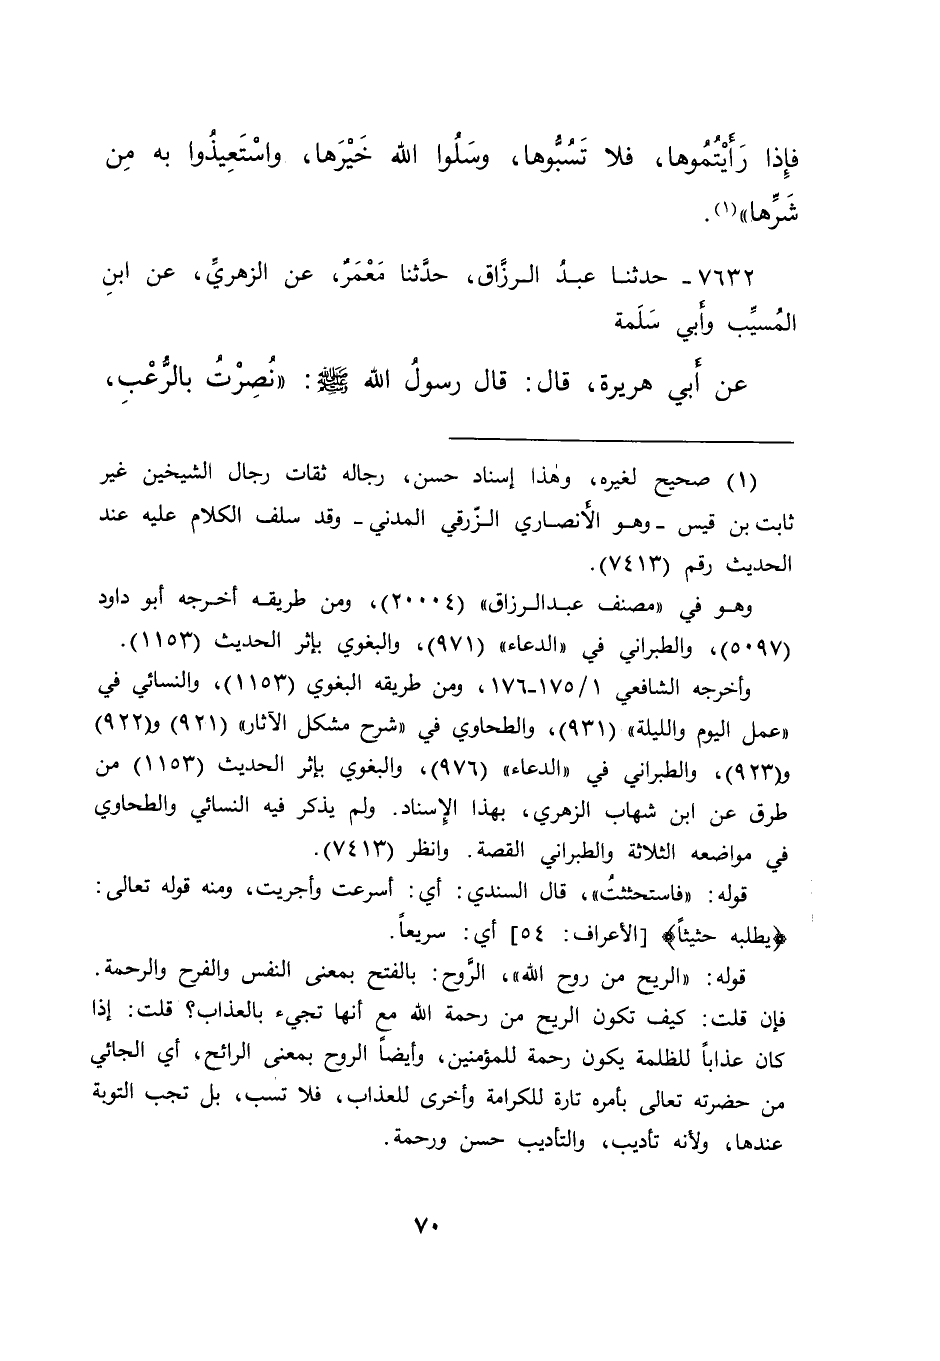 فإِذا رَأَيْتُمُوها، فلا تَسُبُّوها، وسَلُوا الله خَيْرَها، واسْتَعِيذُوا به مِن
شَرِّها»(١).
٧٦٣٢ـ حدثنا عبدُ الرزَّاق، حدَّثنا مَعْمَرٌ، عن الزهريِّ، عن ابنِ
المُسيِّب وأَبي سَلَمة
عن أَبي هريرة، قال: قال رسولُ الله ﷺ: «نُصِرْتُ بالرُّعْبِ،
(١) صحيح لغيره، وهٰذا إسناد حسن، رجاله ثقات رجال الشيخين غير
ثابت بن قيس ـ وهو الأنصاري الزّرقي المدني ـ وقد سلف الكلام عليه عند
الحديث رقم (٧٤١٣).
وهو في «مصنف عبدالرزاق» (٢٠٠٠٤)، ومن طريقه أخرجه أبو داود
(٥٠٩٧)، والطبراني في «الدعاء» (٩٧١)، والبغوي بإثر الحديث (١١٥٣).
وأخرجه الشافعي ١/ ١٧٥ـ١٧٦، ومن طريقه البغوي (١١٥٣)، والنسائي في
«عمل اليوم والليلة» (٩٣١)، والطحاوي في «شرح مشكل الآثار» (٩٢١) و(٩٢٢)
و(٩٢٣)، والطبراني في «الدعاء» (٩٧٦)، والبغوي بإثر الحديث (١١٥٣) من
طرق عن ابن شهاب الزهري، بهذا الإسناد. ولم يذكر فيه النسائي والطحاوي
في مواضعه الثلاثة والطبراني القصة. وانظر (٧٤١٣).
قوله: «فاستحثثتُ»، قال السندي: أي: أسرعت وأجريت، ومنه قوله تعالى:
﴿يطلبه حثيثاً﴾ [الأعراف: ٥٤] أي: سريعاً.
قوله: «الريح من روح الله»، الرَّوح: بالفتح بمعنى النفس والفرح والرحمة.
فإن قلت: كيف تكون الريح من رحمة الله مع أنها تجيء بالعذاب؟ قلت: إذا
كان عذاباً للظلمة يكون رحمة للمؤمنين، وأيضاً الروح بمعنى الرائح، أي الجائي
من حضرته تعالى بأمره تارة للكرامة وأخرى للعذاب، فلا تسب، بل تجب التوبة
عندها، ولأنه تأديب، والتأديب حسن ورحمة.
٧٠